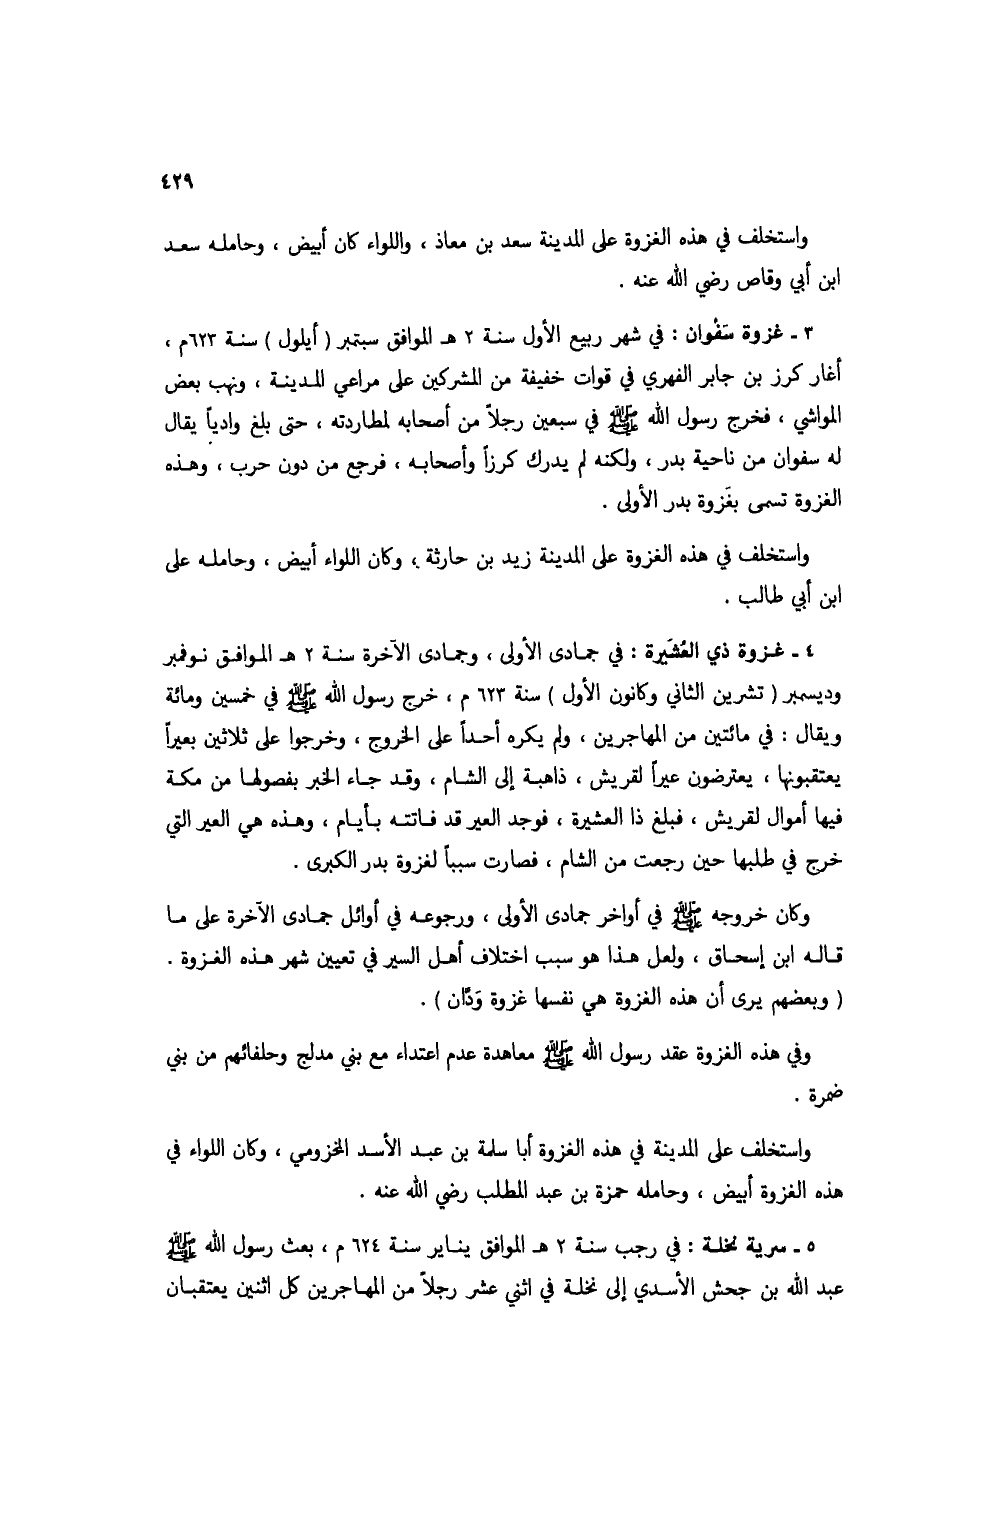 ٤٢٩
واستخلف في هذه الغزوة على المدينة سعد بن معاذ ، واللواء كان أبيض ، وحامله سعد
ابن أبي وقاص رضي الله عنه .
٣ ـ غزوة سَفْوان : في شهر ربيع الأول سنة ٢ هـ الموافق سبتمبر ( أيلول ) سنة ٦٢٣م ،
أغار كرز بن جابر الفهري في قوات خفيفة من المشركين على مراعي المدينة ، ونهب بعض
المواشي ، فخرج رسول الله ﷺ في سبعين رجلاً من أصحابه لمطاردته ، حتى بلغ وادياً يقال
له سفوان من ناحية بدر ، ولكنه لم يدرك كرزاً وأصحابه ، فرجع من دون حرب ، وهذه
الغزوة تسمى بغَزوة بدر الأولى .
واستخلف في هذه الغزوة على المدينة زيد بن حارثة ، وكان اللواء أبيض ، وحامله على
ابن أبي طالب .
٤ ـ غزوة ذي العُشَيرة : في جمادى الأولى ، وجمادى الآخرة سنة ٢ هـ الموافق نوفمبر
وديسمبر ( تشرين الثاني وكانون الأول ) سنة ٦٢٣ م ، خرج رسول الله ﷺ في خمسين ومائة
ويقال : في مائتين من المهاجرين ، ولم يكره أحداً على الخروج ، وخرجوا على ثلاثين بعيراً
يعتقبونها ، يعترضون عيراً لقريش ، ذاهبة إلى الشام ، وقد جاء الخبر بفصولها من مكة
فيها أموال لقريش ، فبلغ ذا العشيرة ، فوجد العير قد فاتته بأيام ، وهذه هي العير التي
خرج في طلبها حين رجعت من الشام ، فصارت سبباً لغزوة بدر الكبرى .
وكان خروجه ﷺ في أواخر جمادى الأولى ، ورجوعه في أوائل جمادى الآخرة على ما
قاله ابن إسحاق ، ولعل هذا هو سبب اختلاف أهل السير في تعيين شهر هذه الغزوة .
( وبعضهم يرى أن هذه الغزوة هي نفسها غزوة وَدَّان ) .
وفي هذه الغزوة عقد رسول الله ﷺ معاهدة عدم اعتداء مع بني مدلج وحلفائهم من بني
ضمرة .
واستخلف على المدينة في هذه الغزوة أبا سلمة بن عبد الأسد المخزومي ، وكان اللواء في
هذه الغزوة أبيض ، وحامله حمزة بن عبد المطلب رضي الله عنه .
٥ ـ سرية نخلة : في رجب سنة ٢ هـ الموافق يناير سنة ٦٢٤ م ، بعث رسول الله ﷺ
عبد الله بن جحش الأسدي إلى نخلة في اثني عشر رجلاً من المهاجرين كل اثنين يعتقبان